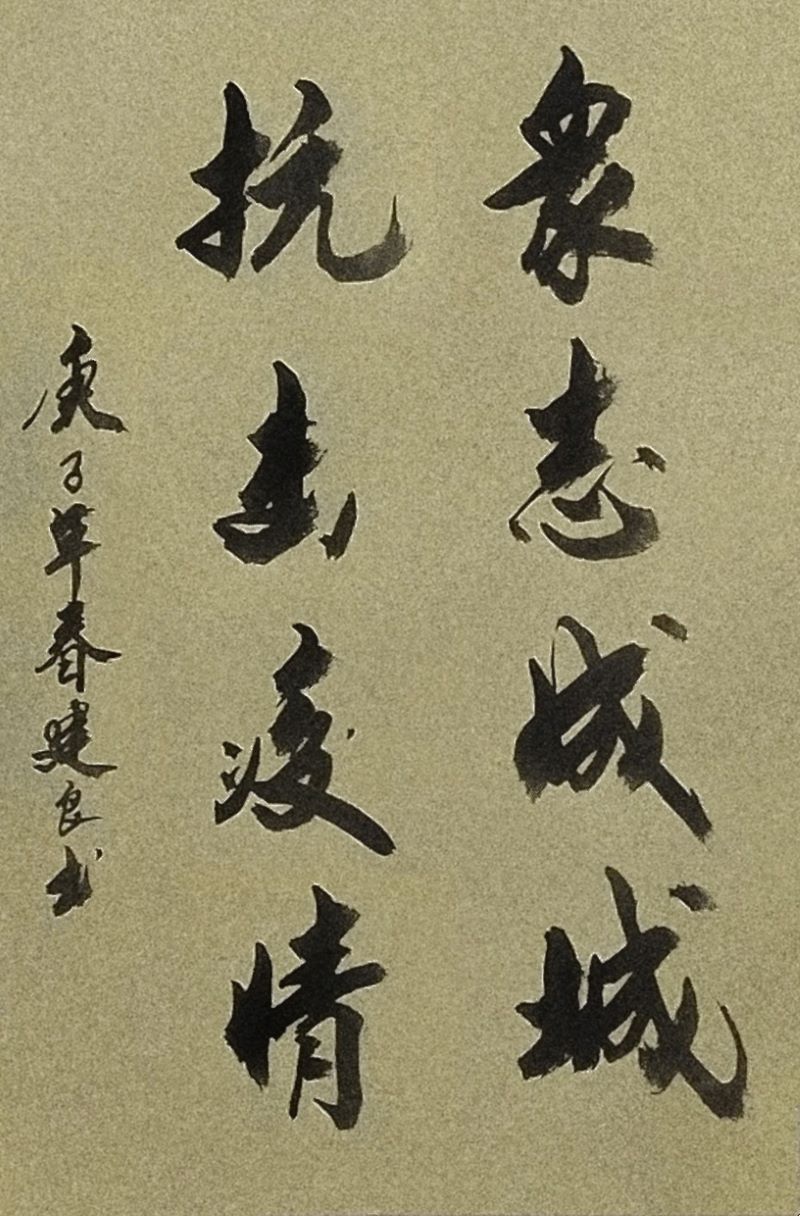 衆志成城
抗击疫情
庚子年春建良书